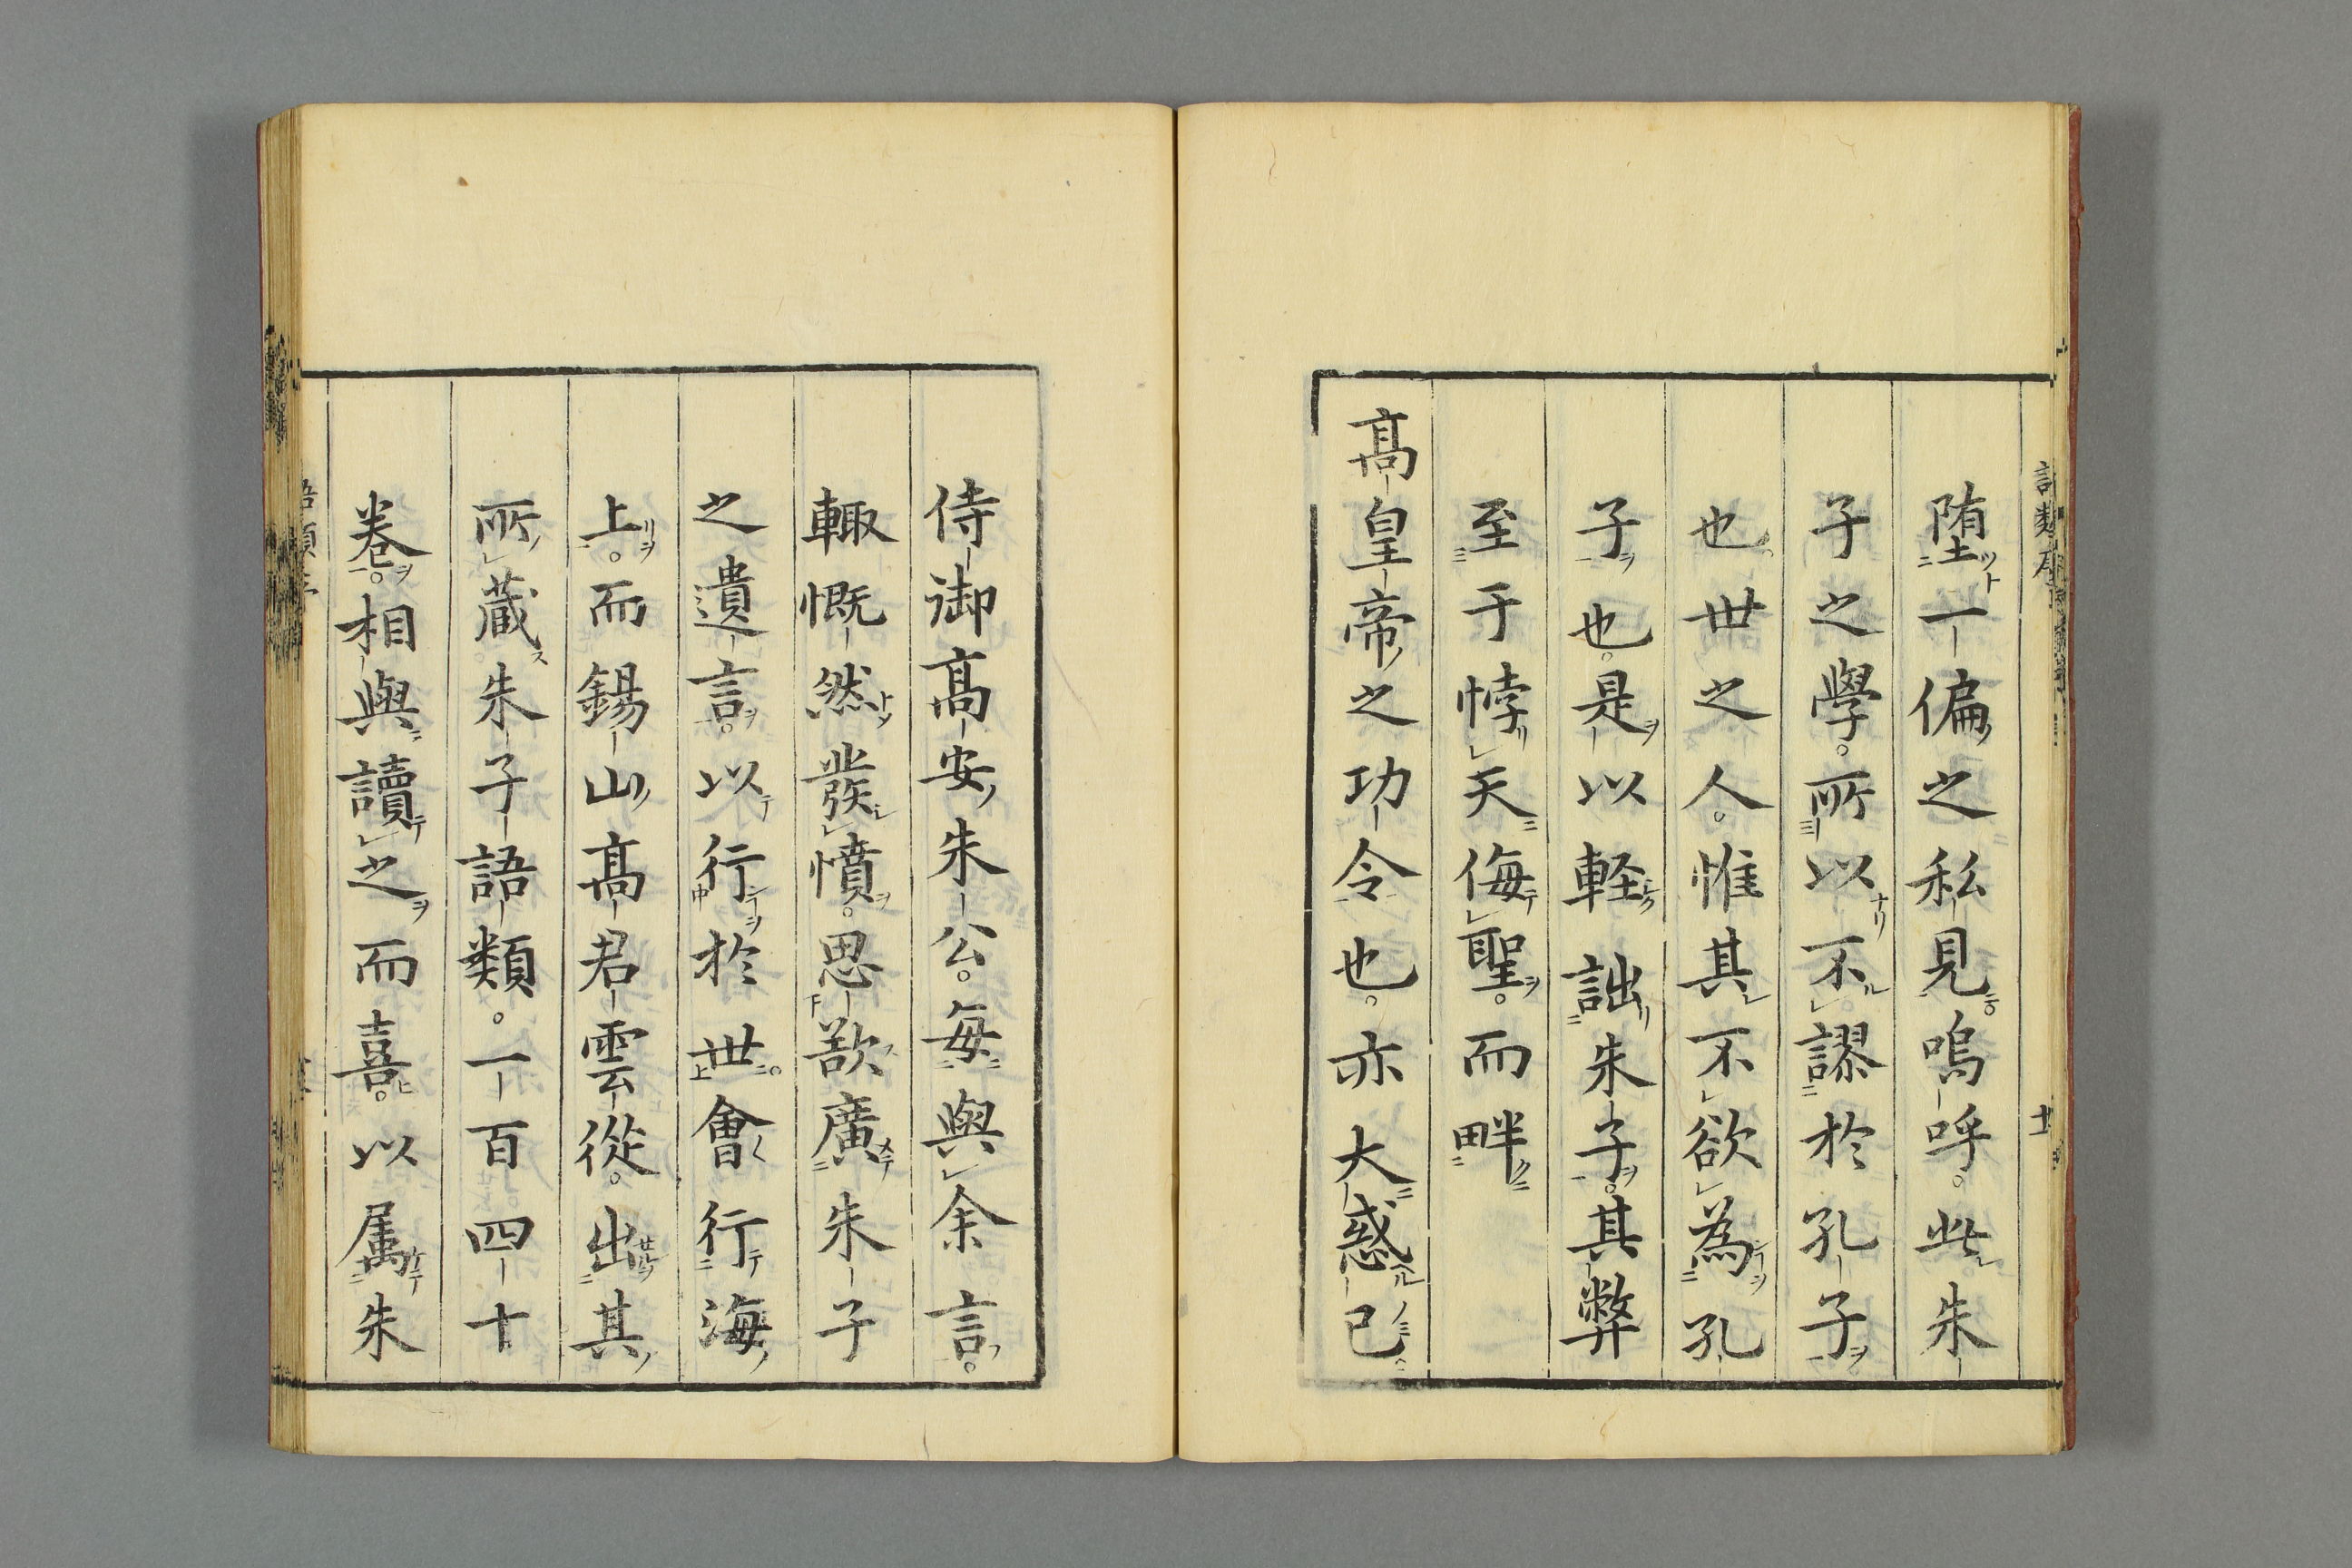 堕一偏之私見嗚呼。此朱
子之學。所以不謬於孔子
也世之人。惟其不欲為孔
子也。是以軽詘朱子。其弊
至于悖天侮聖。而畔
髙皇帝之功令也。亦大惑已
侍御髙安朱公。毎與余言。
輙慨然發憤。思歆廣朱子
之遺言。以行於世會行海
上。而錫山髙君雲從。出其
所蔵朱子語類。一百四十
巻。相與讀之而喜。以属朱